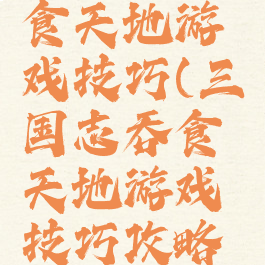 食天地游
戏技巧(三
国志吞食
天地游戏
技巧攻略